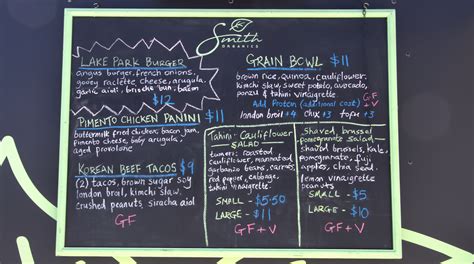 Smith
ORGANICS
LAKE PARK BURGER
angus burger, french onions,
gooey raclette cheese, arugula,
garlic aioli, brioche bun, bacon
$12
PIMENTO CHICKEN PANINI $11
buttermilk fried chicken, bacon jam,
Pimento cheese, baby arugula,
aged provolone
KOREAN BEEF TACOS $9
(2) tacos, brown sugar soy
london broil, kimchi slaw,
crushed peanuts, siracha aid
GF
GRAIN BOWL $11
brown rice, quinoa, cauliflower,
kimchi slaw, sweet potato, avocado,
ponzu & tahini vinaigrette
GF
+
V
Add Protein (additional cost)
london broil +4 chix +3 tofu +3
Tahini-Cauliflower
SALAD
tumeric roasted
cauliflower, marinated
garbanzo beans, carrots,
red peppers, cabbage,
tahini vinaigrette
SMALL - $5.50
LARGE - $11
GF + V
Shaved brussel
pomegranate salad
shaved brussels, kale,
pomegranate, fuji
apples, chia seed,
lemon vinaigrette
peanuts
SMALL - $5
LARGE - $10
GF + V